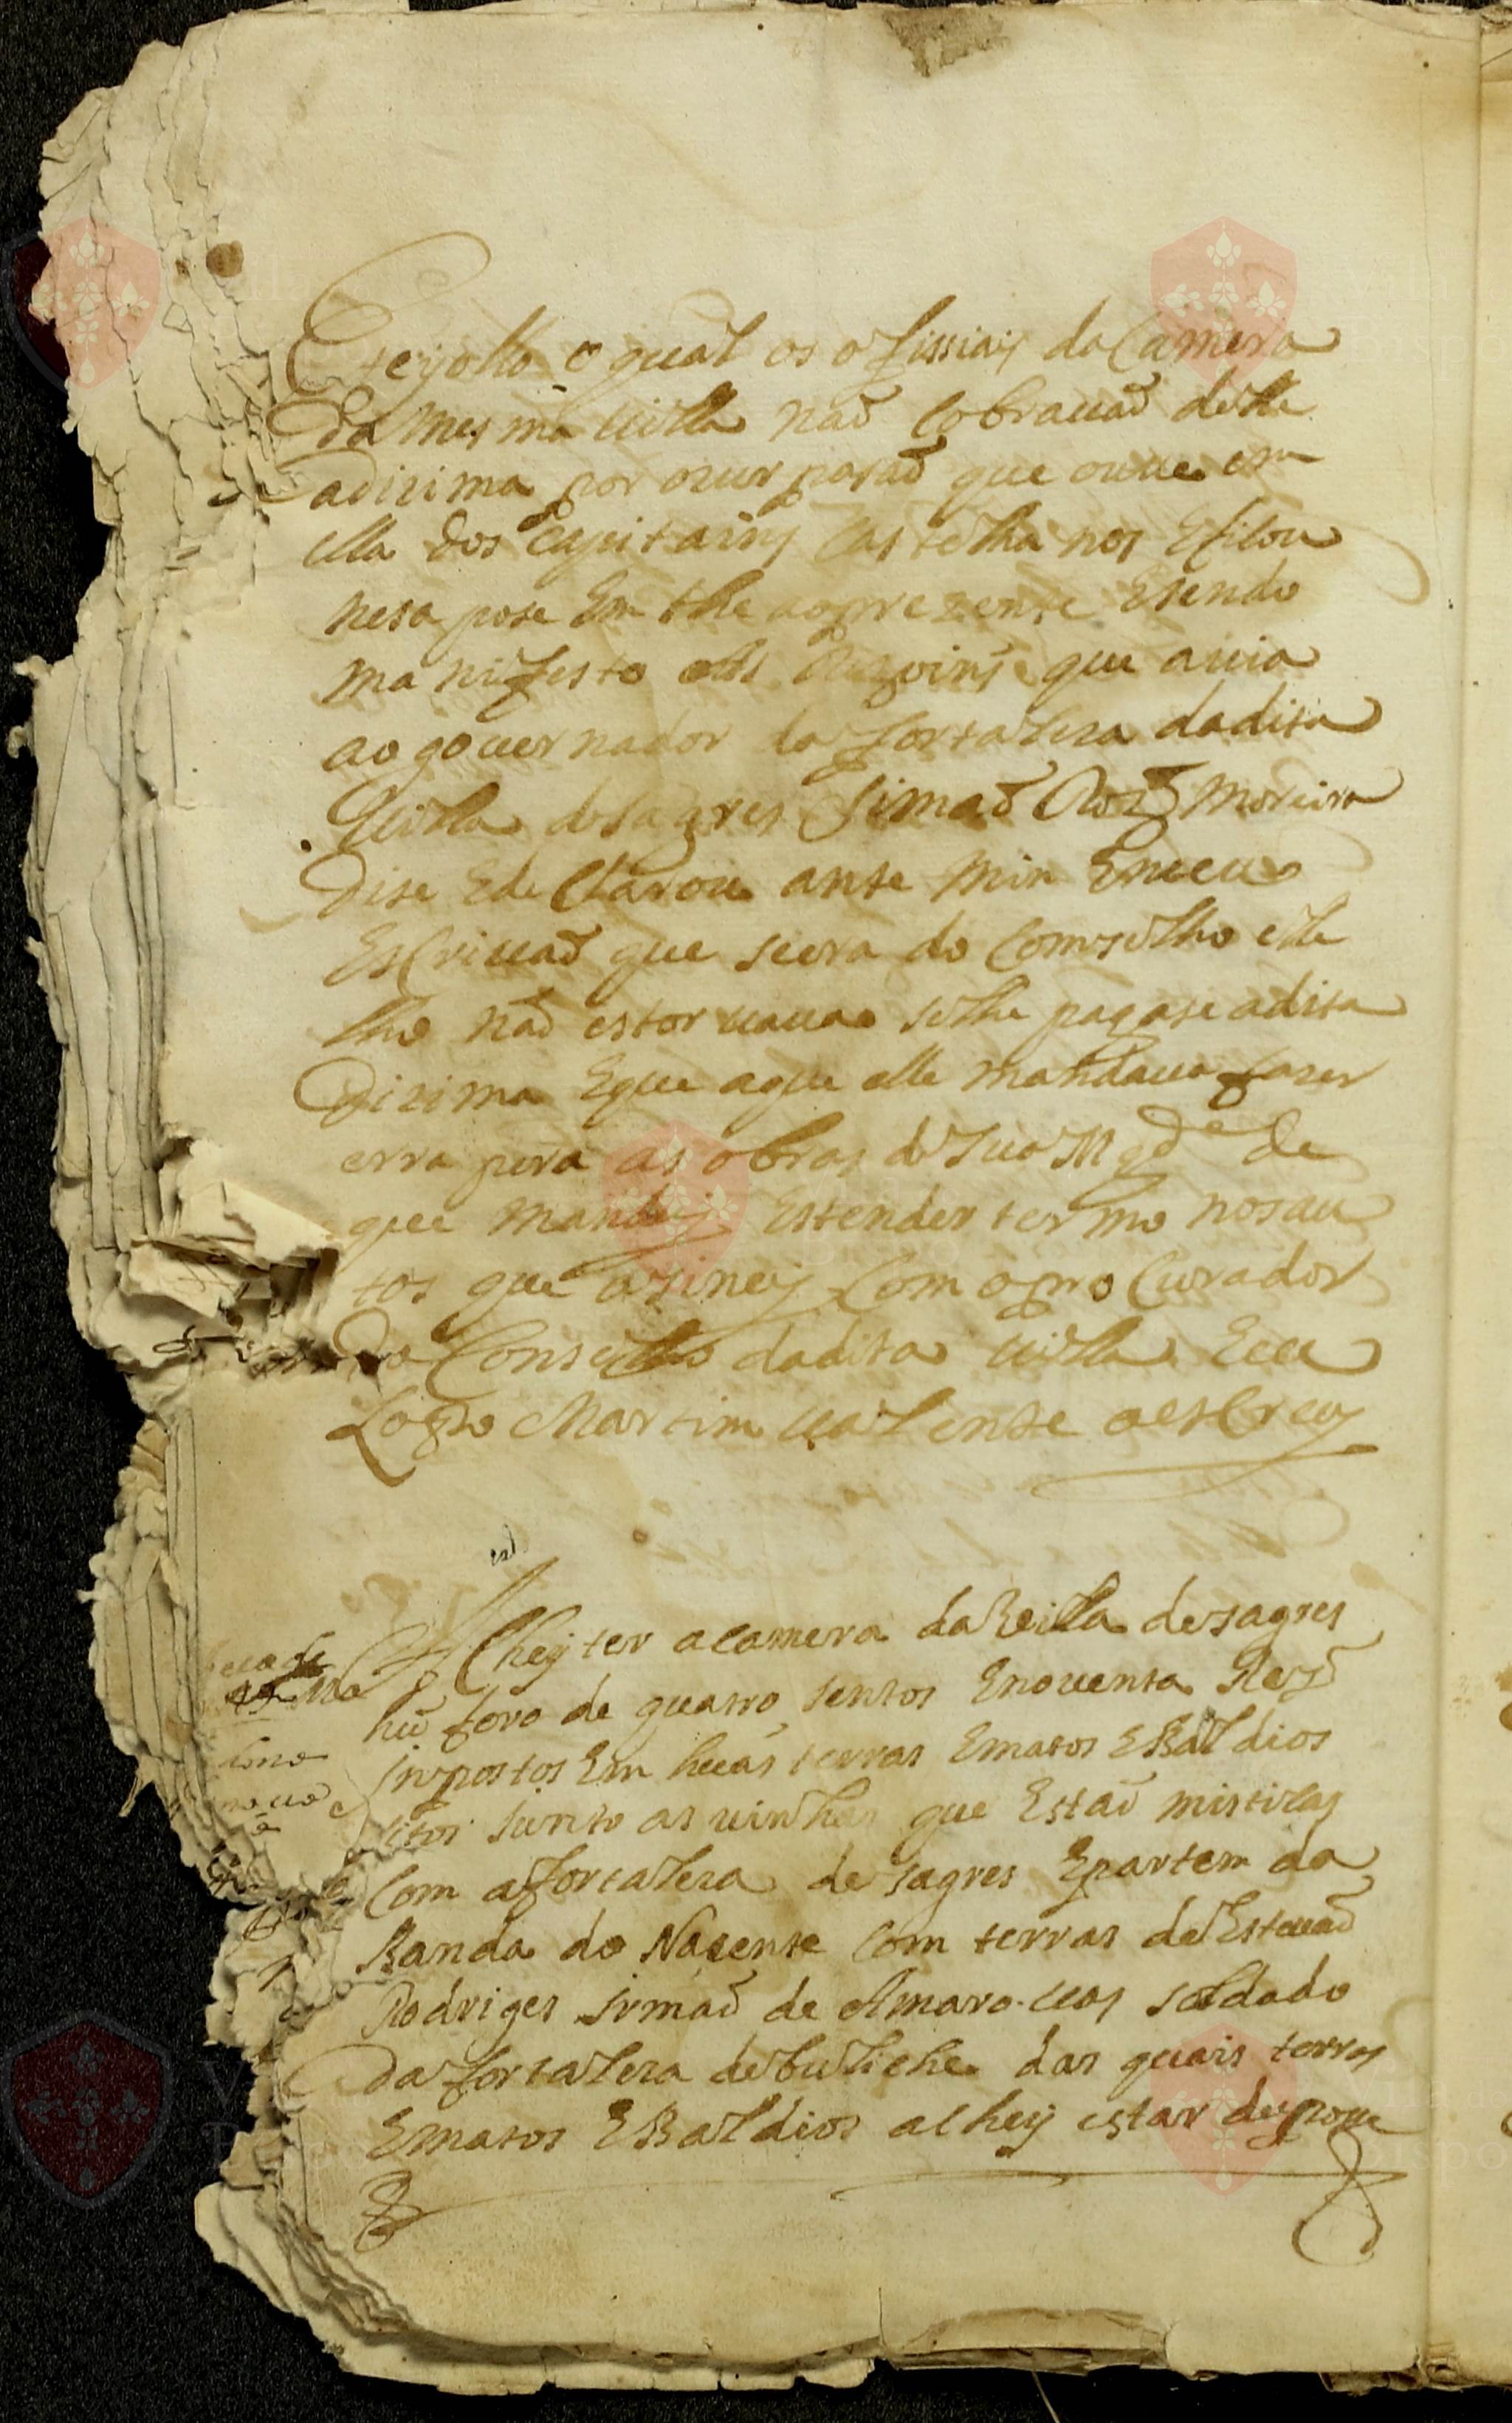 e teyollo o qual os ofissiais da Camera
da mesma uilla naõ Cobrauaõ della
adizima por ozurpasaõ que ouue em
ella dos Capitains Castelhanos E ficou
nesa pose Em the aoprezente Esendo
manifesto que auia
ao gouernador da fortaleza dadita
Uilla desagres Simaõ Roiz moreira
Dise Ede Clarou ante mim Emeu
EsCriuaõ que seera do Comselho elle
lho naõ estoruaua selhe pagase adita
Dizima Eque aque elle mandaua fazer
erra pera as obras de Sua Mgde de
que mandey Estender termo nosau
tos que asiney Com opro Curador
do Conselho dadita uilla Eeu
Lopo Martim ualente oesCreuy
Achey ter acamera da Uilla desagres
hũ foro de quatro sentos Enouenta Reis
inpostos Em huas terras Ematos EBaldios
sitos Junto as uinhas que Estaõ misticas
Com afortaleza de sagres Epartem da
Banda do Nasente Com terras de Esteuaõ
Rodriges irmaõ de Amaro uas soldado
da fortaleza debeliche das quais terras
Ematos EBaldios achey estar de pose